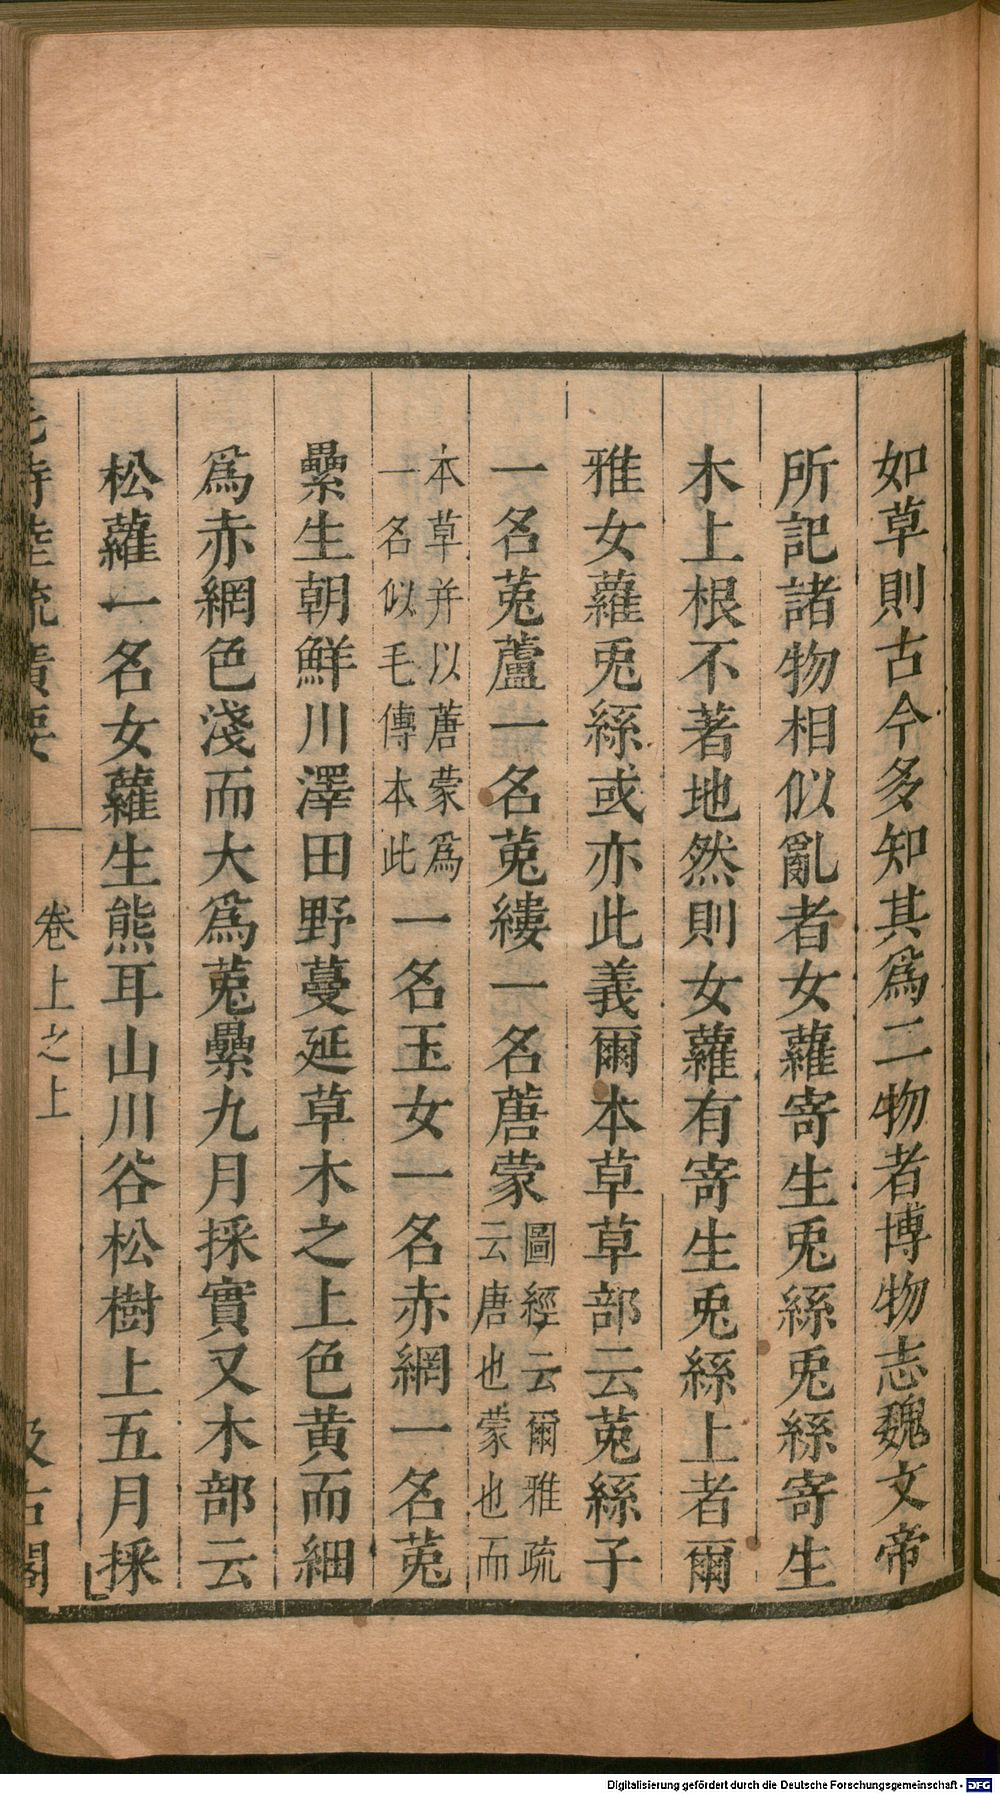 如草則古今多知其爲二物者博物志魏文帝
所記諸物相似亂者女蘿寄生兎絲兎絲寄生
木上根不著地然則女蘿有寄生兎絲上者爾
雅女蘿兎絲或亦此義爾本草草部云菟絲子
一名菟蘆一名菟縷一名蓎蒙圖經云爾雅疏云唐也蒙也而
本草并以蓎蒙爲一名似毛傳本此一名玉女一名赤網一名菟
纍生朝鮮川澤田野蔓延草木之上色黄而細
爲赤網色淺而大爲菟纍九月採實又木部云
松蘿一名女蘿生熊耳山川谷松樹上五月採
毛詩陸疏廣要 卷上之上 汲古閣
Digitalisierung gefördert durch die Deutsche Forschungsgemeinschaft - DFG